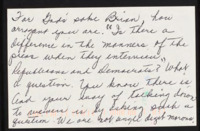 For God's sake Brian, how
arrogant you are. "Is there a
difference in the manners of the
press when they interview
Republicans and democrats?" What
a question. You know there is
and your way of
to is by asking such a
question. We are not angel depth morons,